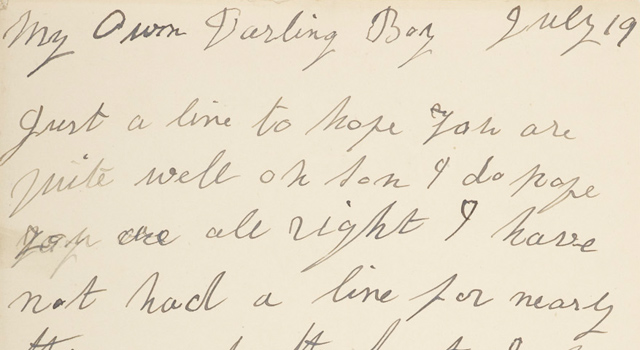 My Own Darling Boy July 19
Just a line to hope you are
quite well oh son I do hope
you are all right I have
not had a line for nearly